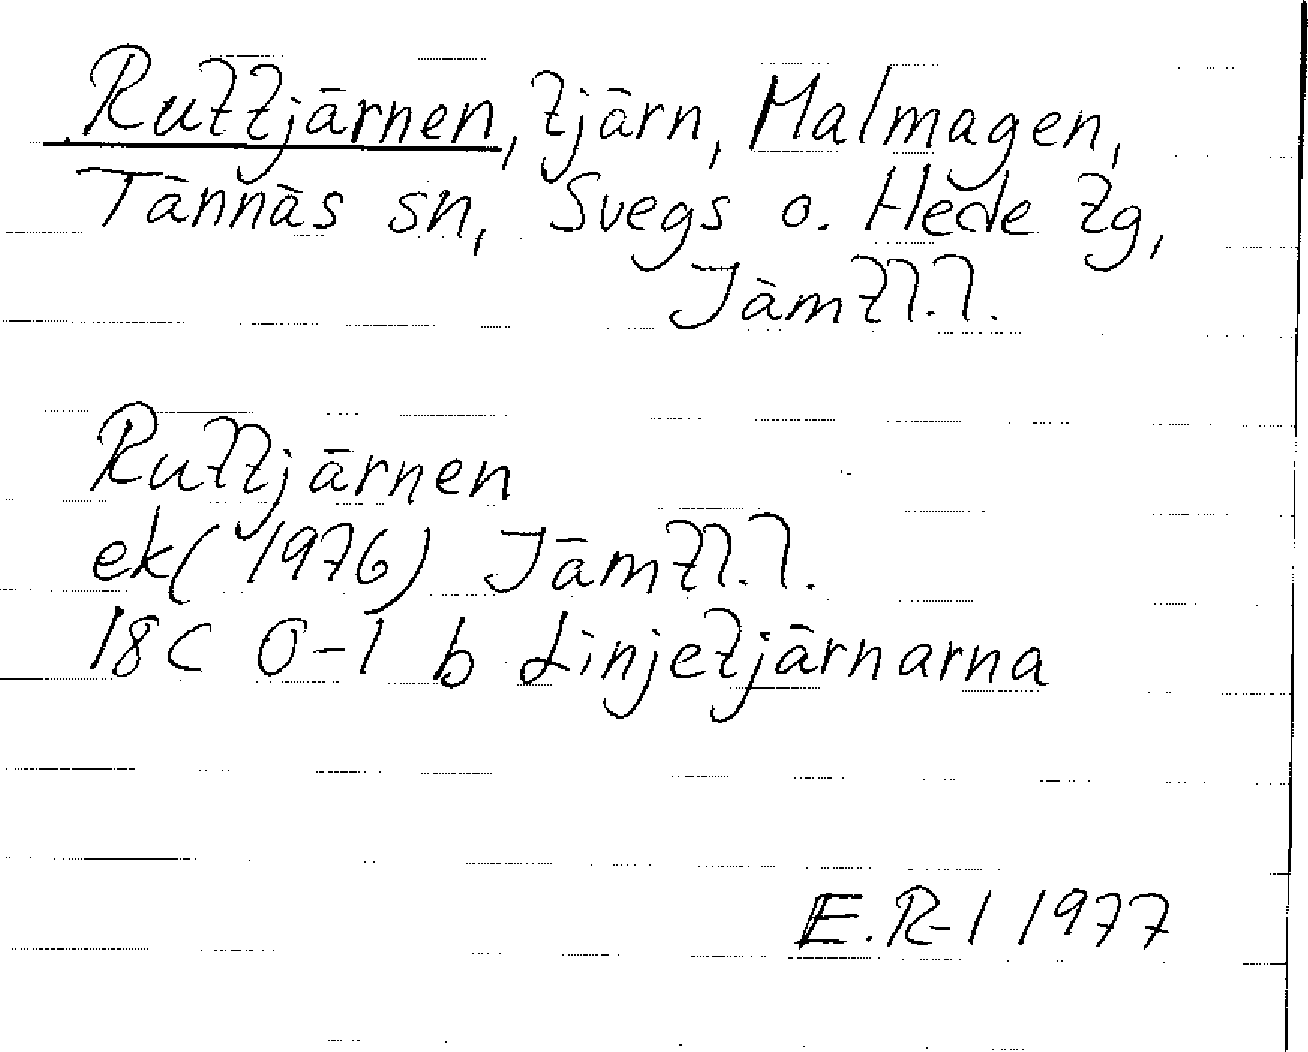 Ruttjärnen, tjärn, Malmagen,
Tännäs sn, Svegs o. Hede tg,
Jämtl.l.
Ruttjärnen
ek(1976) Jämtl.l.
18C 0-1 b Linjetjärnarna
E.R-l 1977